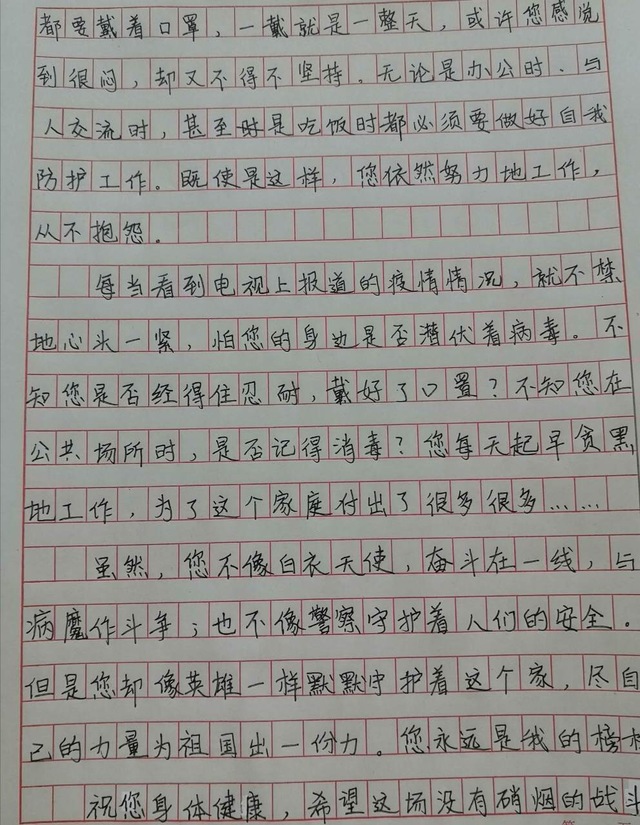 都要戴着口罩，一戴就是一整天，或许您感觉
到很闷，却又不得不坚持。无论是办公时、与
人交流时，甚至时是吃饭时都必须要做好自我
防护工作。既使是这样，您依然努力地工作，
从不抱怨。
每当看到电视上报道的疫情情况，就不禁
地心头一紧，怕您的身边是否潜伏着病毒。不
知您是否经得住忍耐，戴好了口置？不知您在
公共场所时，是否记得消毒？您每天起早贪黑
地工作，为了这个家庭付出了很多很多……
虽然，您不像白衣天使，奋斗在一线，与
病魔作斗争；也不像警察守护着人们的安全。
但是您却像英雄一样默默守护着这个家，尽自
己的力量为祖国出一份力。您永远是我的榜样
祝您身体健康，希望这场没有硝烟的战斗